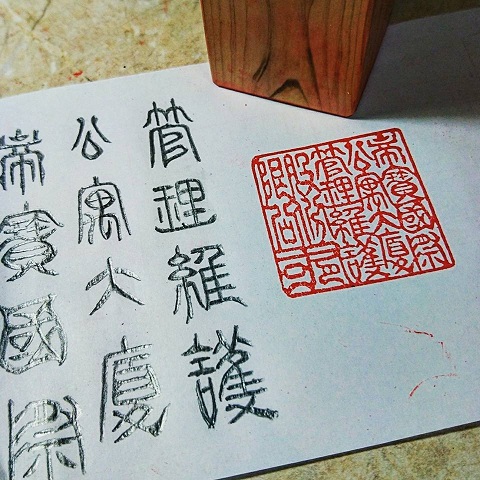 帝寶國際
公寓大廈
管理維護
帝寶國際
公寓大廈
管理維護
股份有
限公司